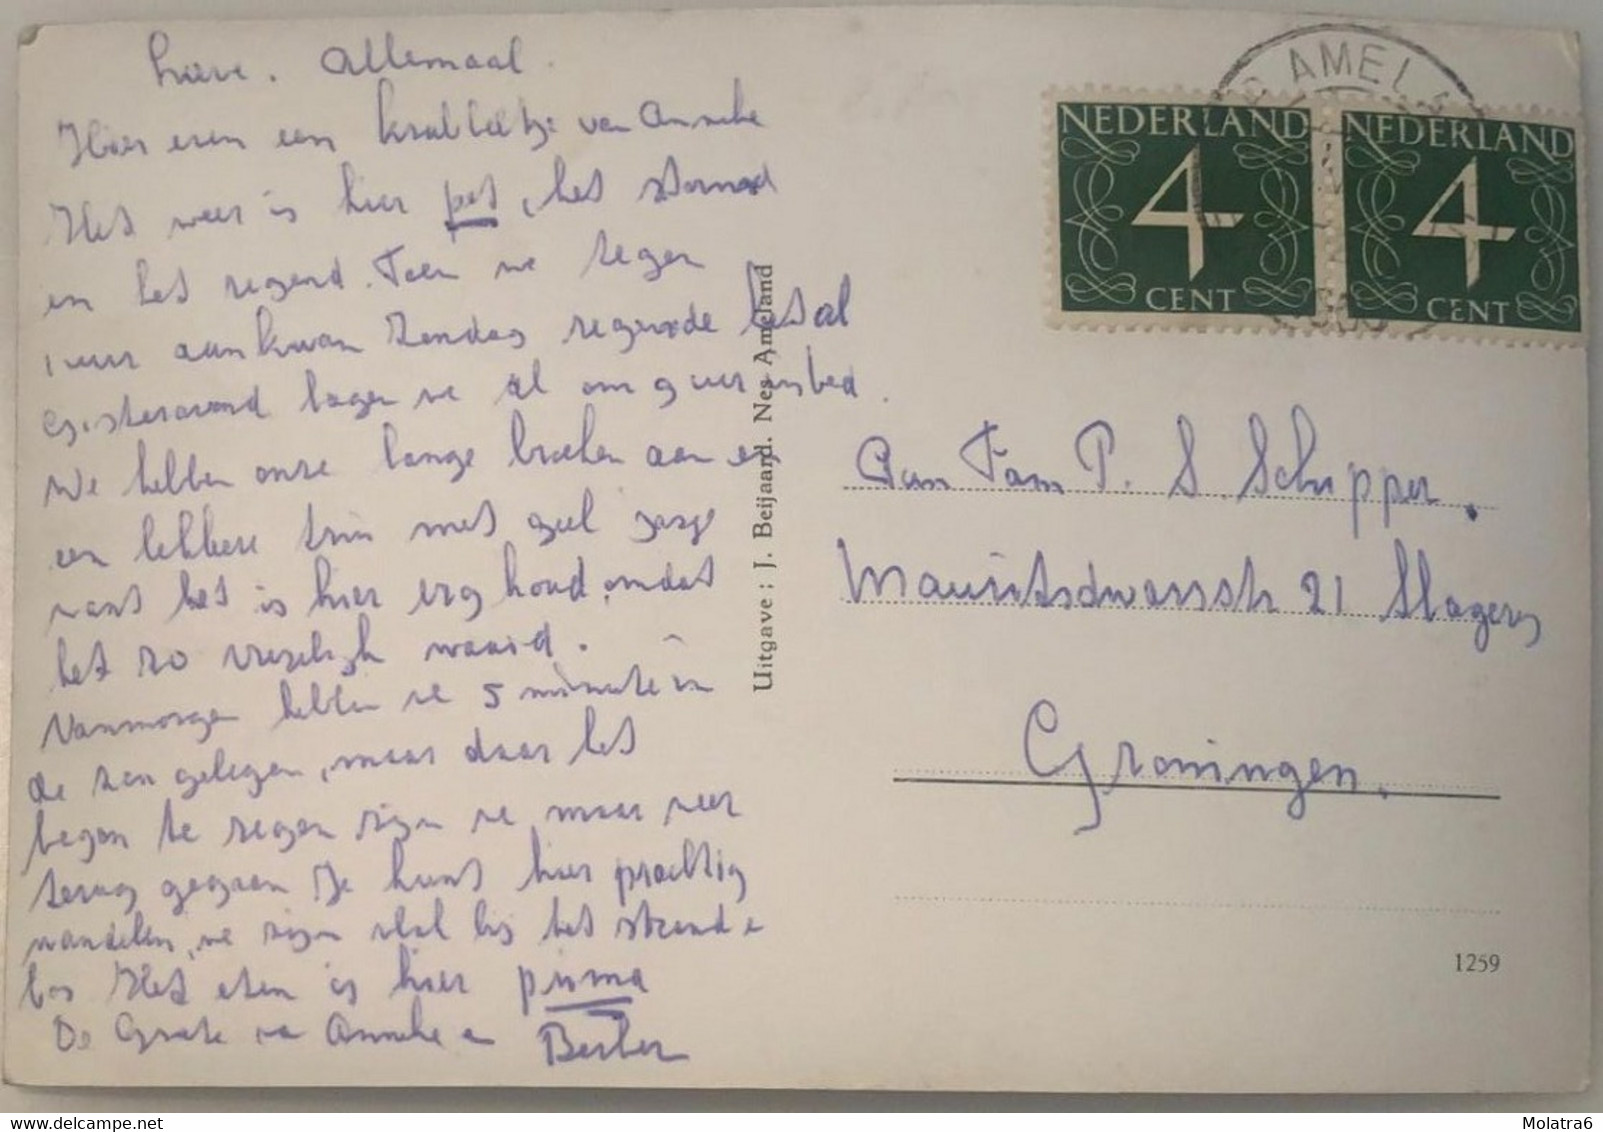 Lieve. Allemaal.
Hier even een krabbeltje van Anneke
Het weer is hier pet, het stormd
en het regend. Toen we tegen
1 uur aankwam Zondag regende het al
Gisteravond lagen we al om 9 uur in bed.
We hebben onze lange broeken aan en
een lekkere trui met geel
want het is hier erg koud, omdat
het zo vreselijk waaid.
Vanmorgen hebben we 5 minute in
de zon gelegen, maar daar het
begon te regen zijn we maar weer
terug gegaan Je kunt hier prachtig
wandelen, we zijn vlak bij het strand e
bos Het eten is hier prima
De Groete van Anneke en
NEDERLAND
4
CENT
NEDERLAND
4
CENT
AMEL
Uitgave : J. Beijaard. Nes Ameland
Aan Fam P. S. Schipper.
Mauritsdwarsstr 21 Slagerij
Groningen.
1259
Molatra6